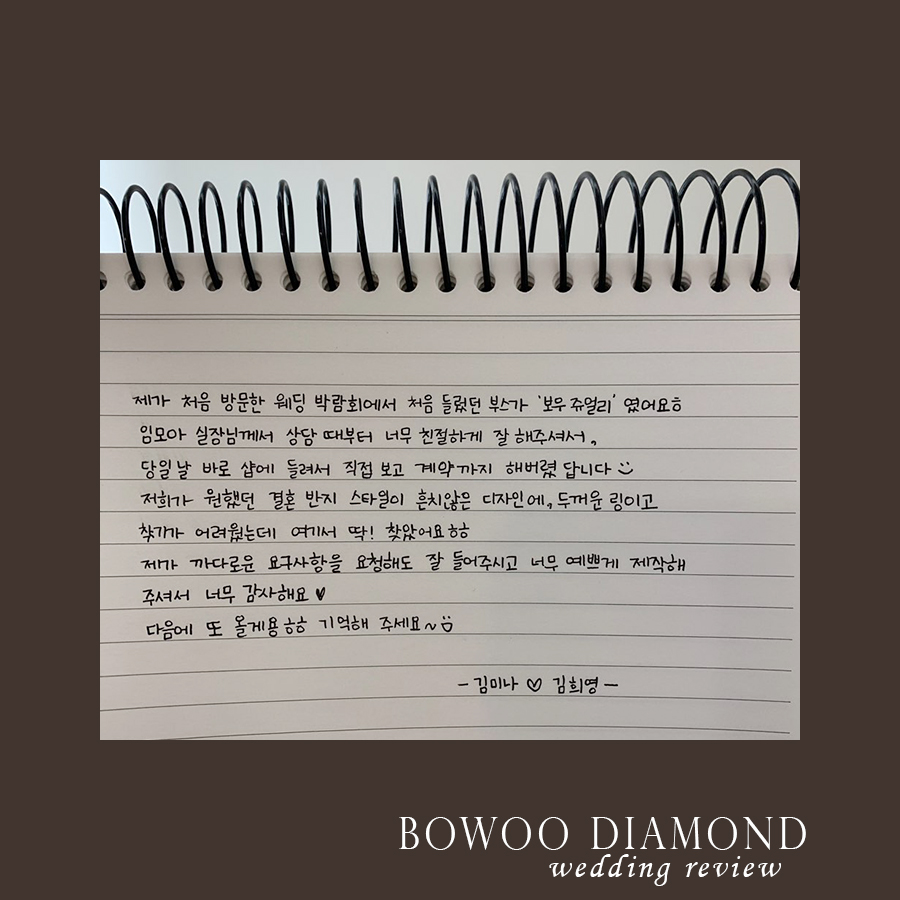 제가 처음 방문한 웨딩 박람회에서 처음 들렀던 부스가 '보우쥬얼리' 였어요ㅎ
임모아 실장님께서 상담 때부터 너무 친절하게 잘 해주셔서,
당일날 바로 샵에 들려서 직접 보고 계약까지 해버렸 답니다 :)
저희가 원했던 결혼 반지 스타일이 흔치않은 디자인에, 두꺼운 링이고
찾기가 어려웠는데 여기서 딱! 찾았어요ㅎㅎ
제가 까다로운 요구사항을 요청해도 잘 들어주시고 너무 예쁘게 제작해
주셔서 너무 감사해요 ♥
다음에 또 올게용ㅎㅎ 기억해 주세요~
- 김미나 ♡ 김희영 -
BOWOO DIAMOND
wedding review